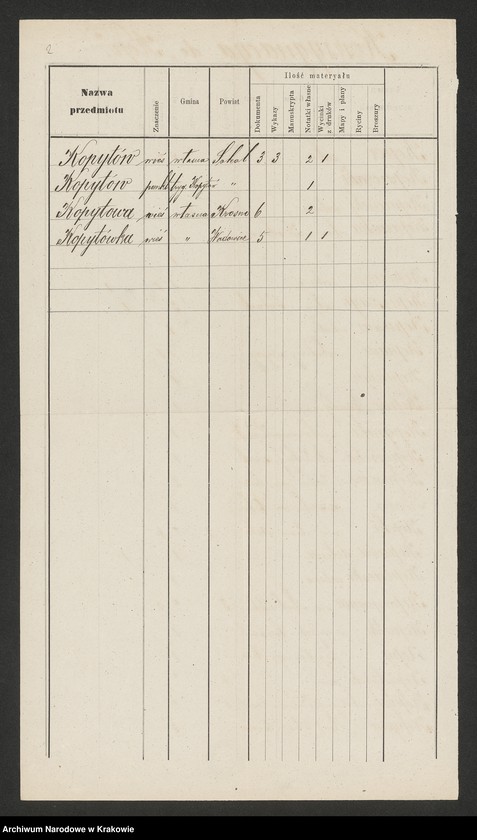 2
Nazwa przedmiotu Znaczenie Gmina Powiat Ilość materyału
Dokumenta Wykazy Manuskrypta Notatki własne Wyciski z druków Mapy i plany Ryciny Broszury
Kopytów wieś własna Sokal 3 3 2 1
Kopytów Kopytów " 1
Kopytowa wieś własna Krosno 6 2
Kopytówka wieś " Wadowice 5 1 1
Archiwum Narodowe w Krakowie